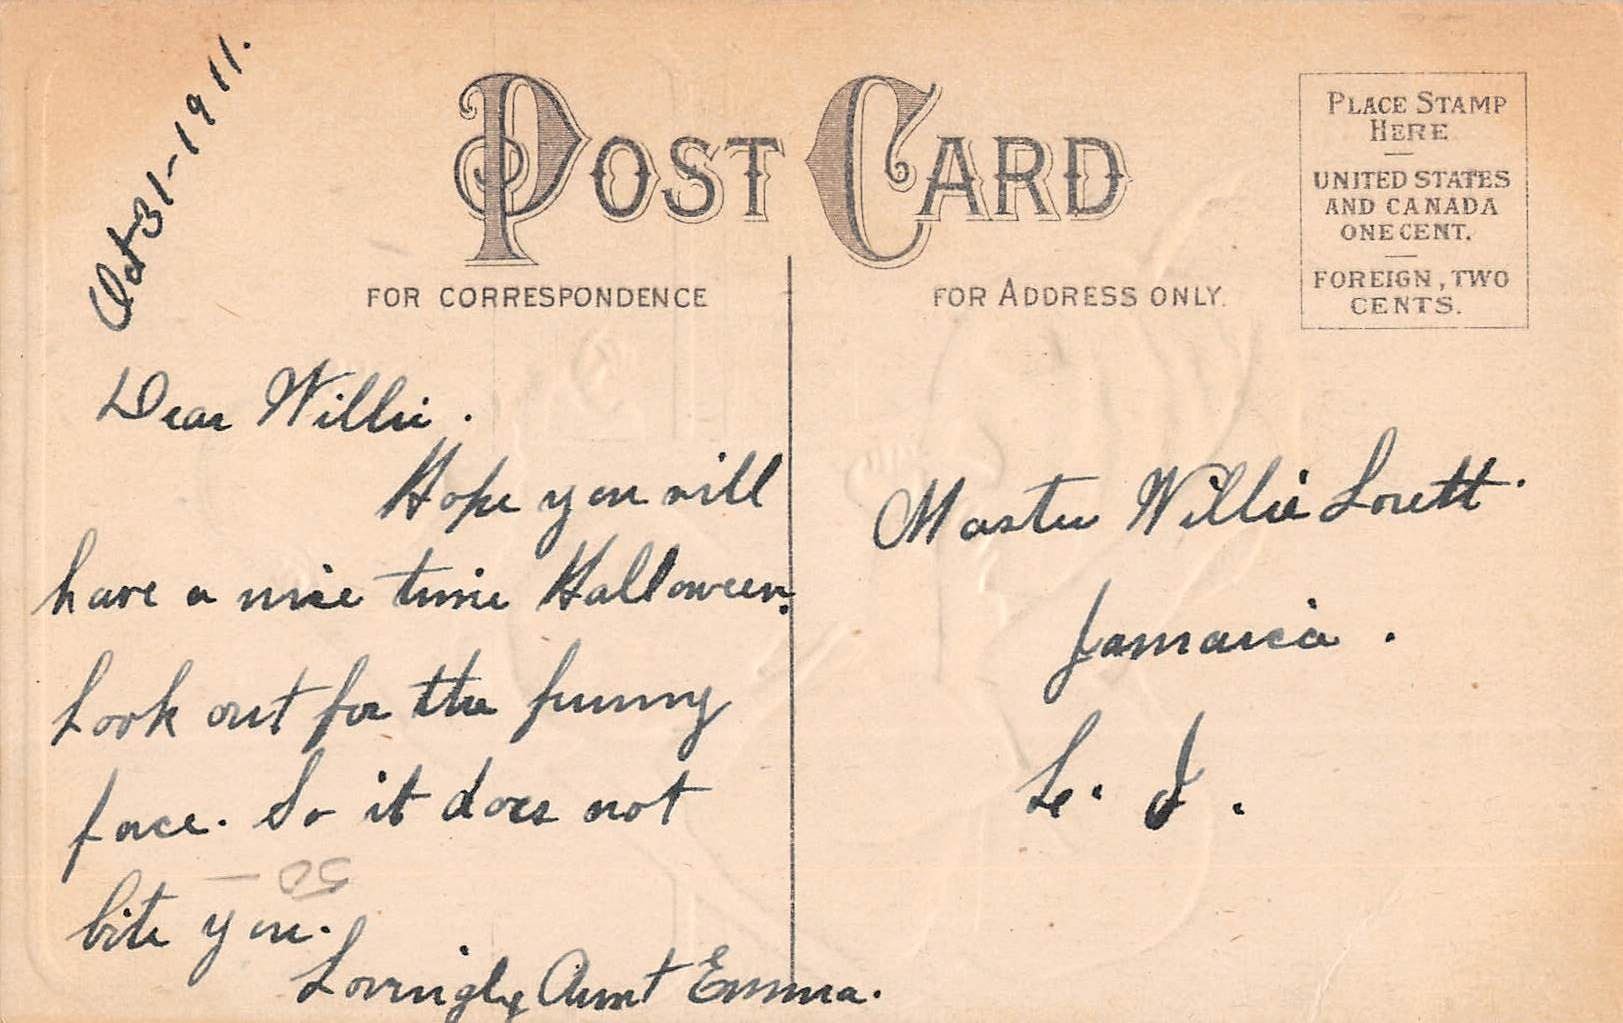 Oct 31-1911.
POST CARD
PLACE STAMP
HERE
UNITED STATES
AND CANADA
ONE CENT.
FOREIGN, TWO
CENTS.
FOR CORRESPONDENCE
FOR ADDRESS ONLY.
Dear Willie.
Hope you will
have a nice time Halloween.
Look out for the funny
face. So it does not
bite you.
50 —
Lovingly Aunt Emma.
Master Willie Lovett.
Jamaica.
L. I.